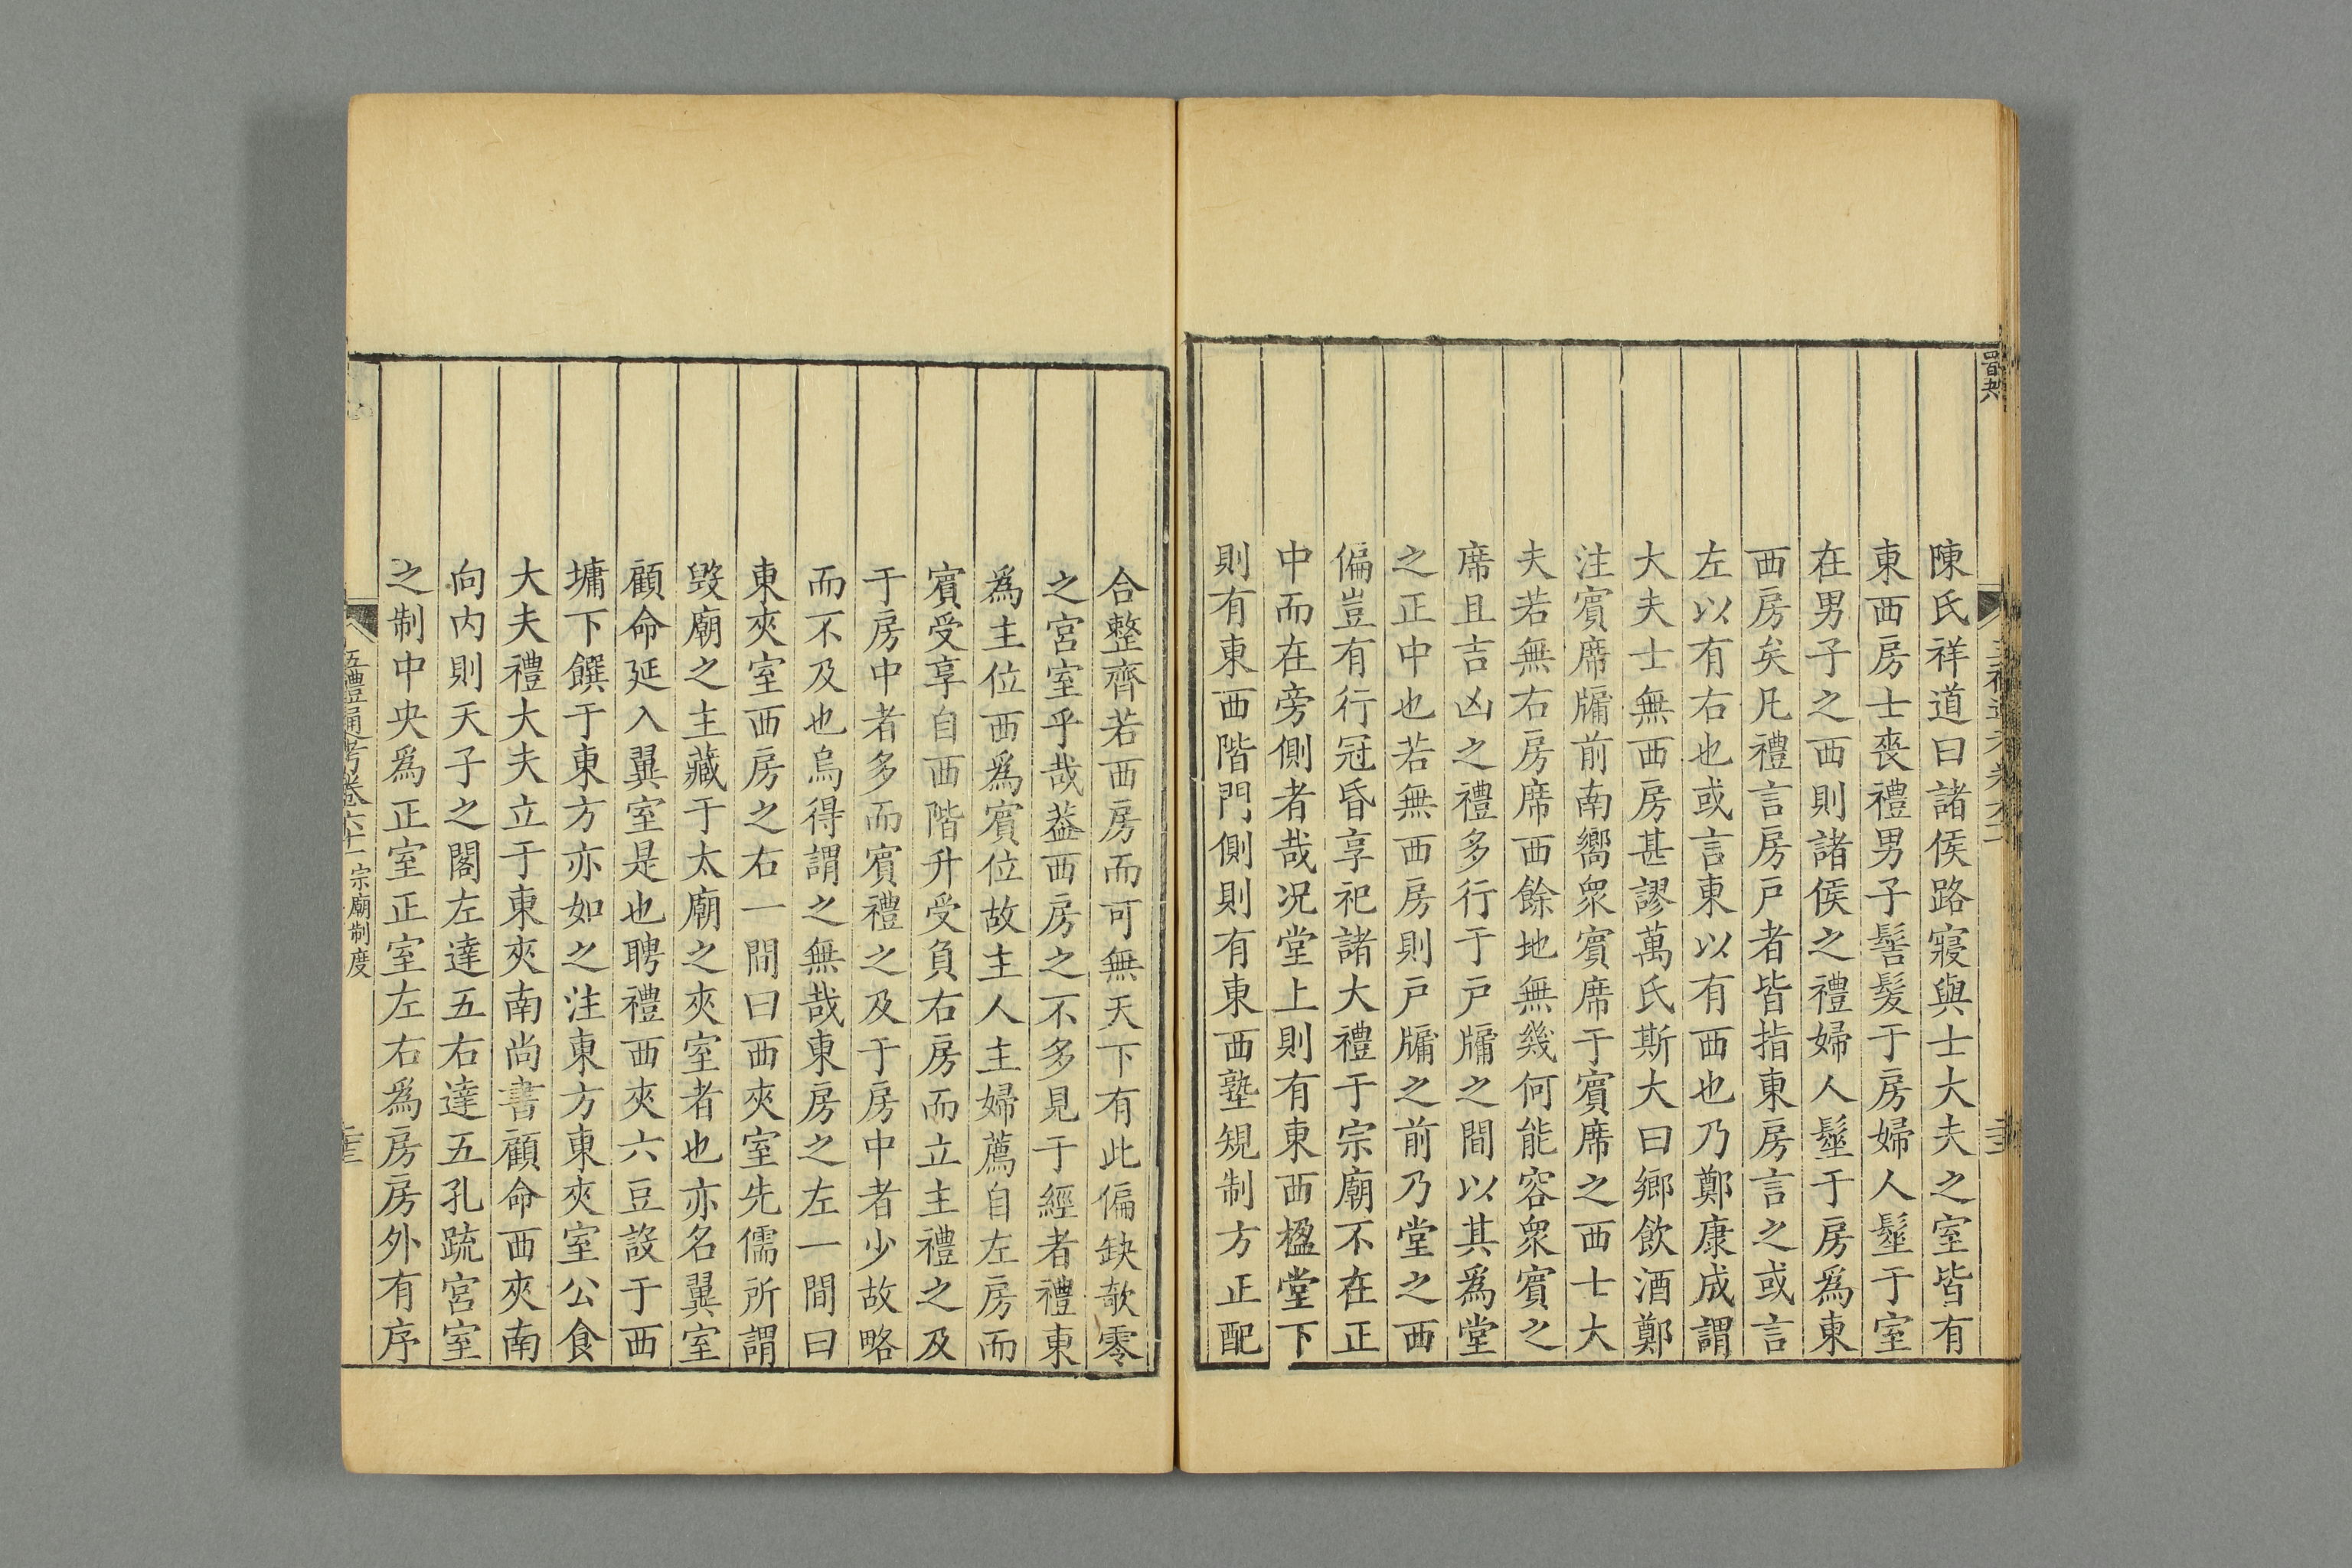 陳氏祥道曰諸侯路寢與士大夫之室皆有
東西房士喪禮男子髻髮于房婦人髽于室
在男子之西則諸侯之禮婦人髽于房爲東
西房矣凡禮言房戸者皆指東房言之或言
左以有右也或言東以有西也乃鄭康成謂
大夫士無西房甚謬萬氏斯大曰鄉飲酒鄭
注賓席牖前南嚮衆賓席于賓席之西士大
夫若無右房席西餘地無幾何能容衆賓之
席且吉凶之禮多行于戸牖之間以其爲堂
之正中也若無西房則戸牖之前乃堂之西
偏豈有行冠昏享祀諸大禮于宗廟不在正
中而在旁側者哉况堂上則有東西楹堂下
則有東西階門側則有東西塾規制方正配
合整齊若西房而可無天下有此偏缺欹零
之宮室乎哉葢西房之不多見于經者禮東
爲主位西爲賓位故主人主婦薦自左房而
賓受享自西階升受負右房而立主禮之及
于房中者多而賓禮之及于房中者少故略
而不及也烏得謂之無哉東房之左一間曰
東夾室西房之右一間曰西夾室先儒所謂
毁廟之主藏于太廟之夾室者也亦名翼室
顧命延入翼室是也聘禮西夾六豆設于西
墉下饌于東方亦如之注東方東夾室公食
大夫禮大夫立于東夾南尚書顧命西夾南
向内則天子之閣左達五右達五孔疏宮室
之制中央爲正室正室左右爲房房外有序
五禮通考卷六十一 宗廟制度